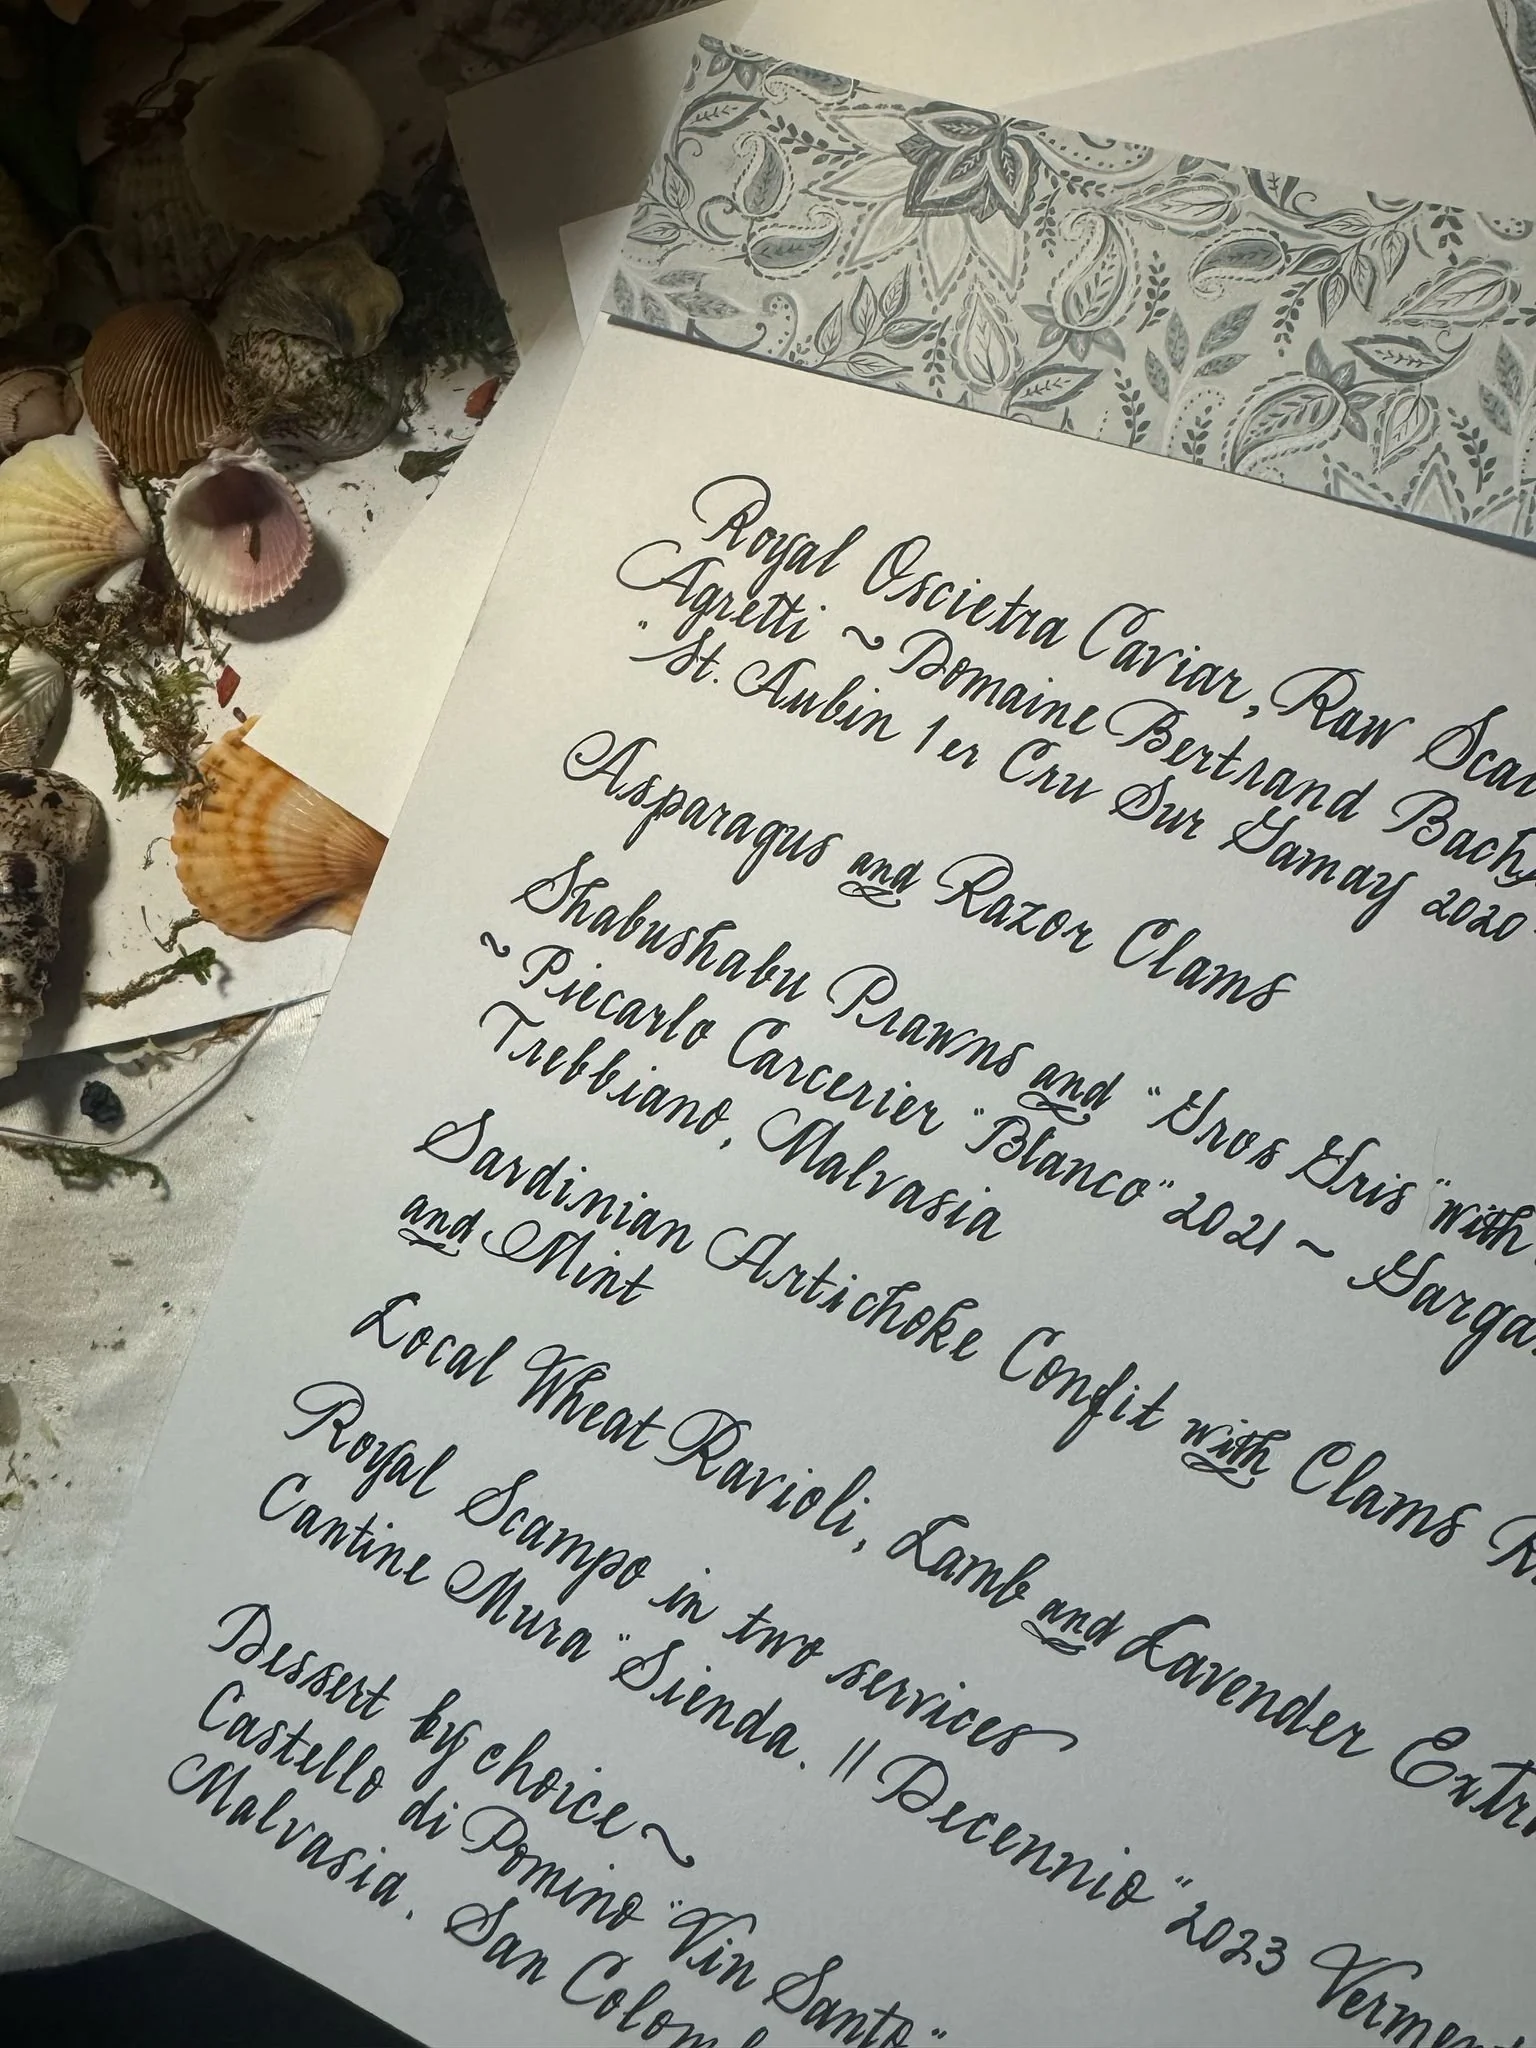 Royal Oscietra Caviar, Raw
Agretti ~ Domaine Bertrand
"St. Aubin 1er Cru Sur Gamay 2020
Asparagus and Razor Clams
Shabushabu Prawns and "Gros Gris" with
~ Piecarlo Carcerier "Blanco" 2021 ~
Trebbiano, Malvasia
Sardinian Artichoke Confit with Clams
and Mint
Local Wheat Ravioli, Lamb and Lavender
Royal Scampo in two services
Cantine Mura "Sienda. || Decennio" 2023
Dessert by choice ~
Castello di Pomino "Vin Santo"
Malvasia. San